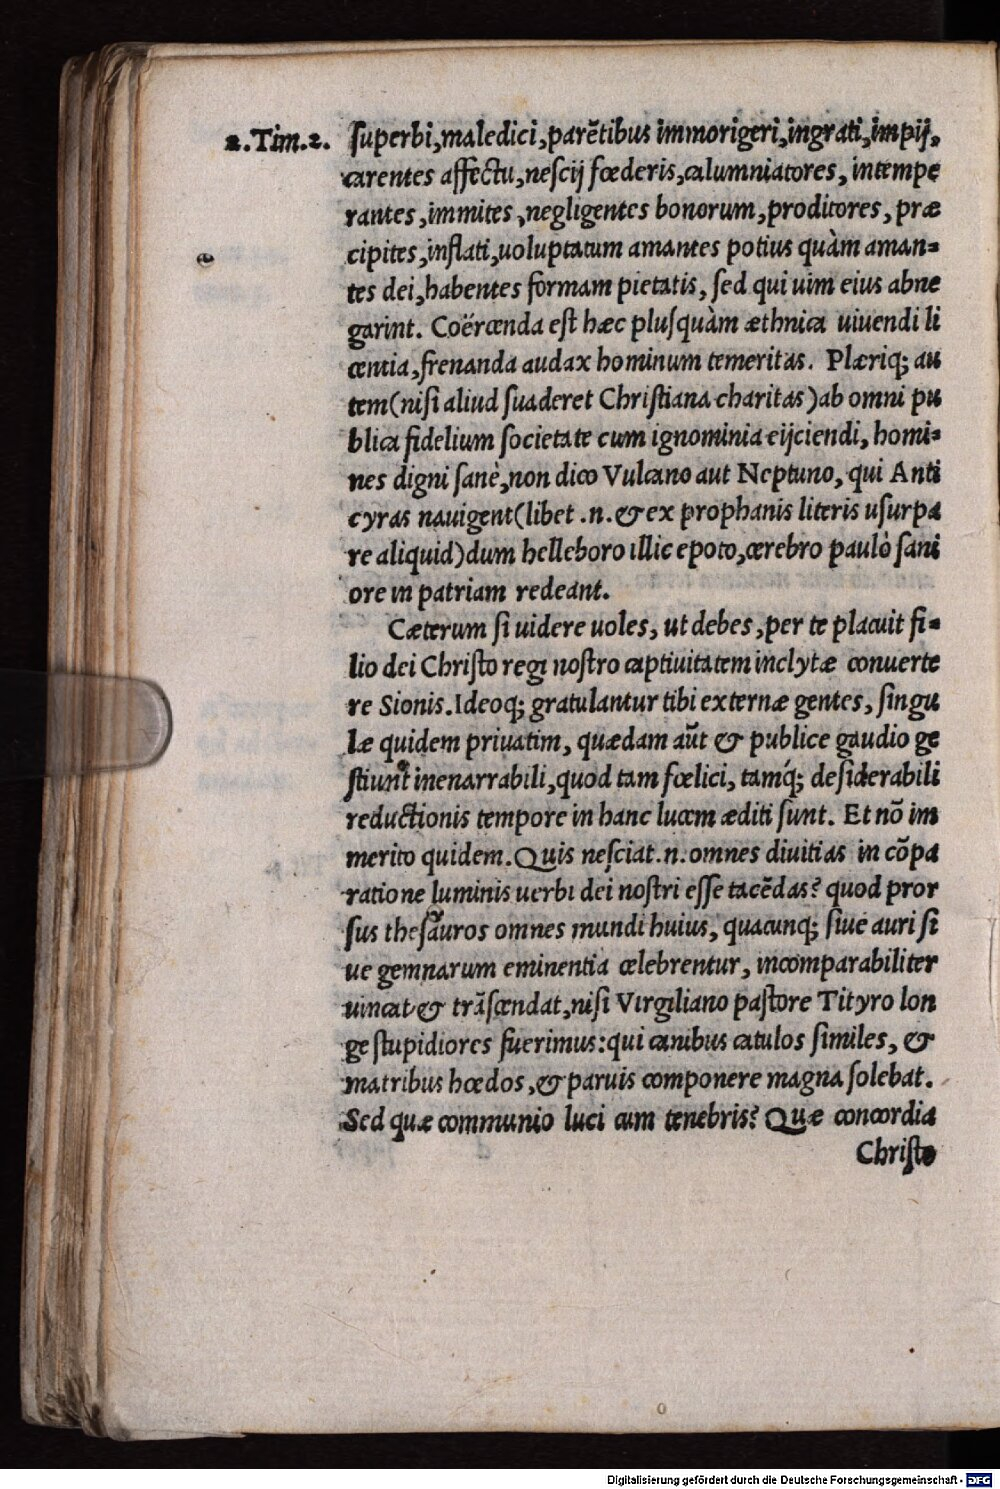 2.Tim.2. superbi,maledici,parētibus immorigeri,ingrati,impij,
carentes affectu,nescij fœderis,calumniatores, intempe
rantes,immites,negligentes bonorum,proditores, præ
cipites,inflati,uoluptatum amantes potius quàm aman=
tes dei,habentes formam pietatis, sed qui uim eius abne
garint. Coërcenda est hæc plusquàm æthnica uiuendi li
centia,frenanda audax hominum temeritas. Plæriq; au
tem(nisi aliud suaderet Christiana charitas)ab omni pu
blica fidelium societate cum ignominia eijciendi, homi=
nes digni sanè,non dico Vulcano aut Neptuno, qui Anti
cyras nauigent(libet .n.& ex prophanis literis usurpa
re aliquid)dum helleboro illic epoto,cerebro paulò sani
ore in patriam redeant.
Cæterum si uidere uoles, ut debes,per te placuit fi=
lio dei Christo regi nostro captiuitatem inclytæ conuerte
re Sionis.Ideoq; gratulantur tibi externæ gentes, singu
læ quidem priuatim, quædam aūt & publice gaudio ge
stiunt inenarrabili,quod tam fœlici, tamq́; desiderabili
reductionis tempore in hanc lucem æditi sunt. Et nō im
merito quidem.Quis nesciat.n.omnes diuitias in cōpa
ratione luminis uerbi dei nostri esse tacēdas? quod pror
sus thesauros omnes mundi huius, quacunq; siue auri si
ue gemnarum eminentia celebrentur, incomparabiliter
uincat & trāscendat,nisi Virgiliano pastore Tityro lon
ge stupidiores fuerimus:qui canibus catulos similes, &
matribus hœdos,& paruis componere magna solebat.
Sed quæ communio luci cum tenebris? Quæ concordia
Christo
Digitalisierung gefördert durch die Deutsche Forschungsgemeinschaft - DFG